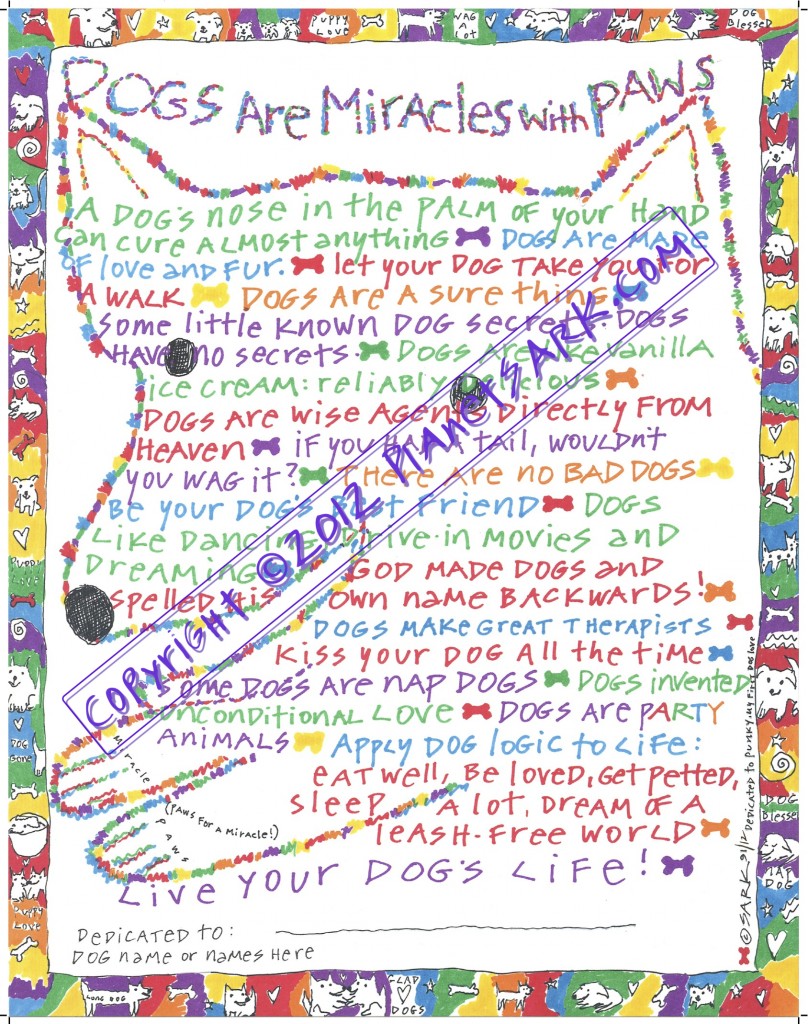 PUPPY LOVE
WAG A LOT
DOG Blessed
DOGS Are Miracles with PAWS
A DOG'S nose in the PALM OF your Hand
can cure ALMOST anything DOGS Are MADE
OF love and FUR. let your DOG TAKE YOU FOR
A WALK DOGS Are A sure thing
Some little known DOG secrets: DOGS
HAVE no secrets. DOGS Are like vanilla
ice cream: reliably Delicious
DOGS Are wise Agents Directly From
Heaven if you HAD A tail, wouldn't
you WAG it? There Are no BAD DOGS
Be your DOG'S Best Friend DOGS
Like Dancing, Drive-in Movies and
Dreaming GOD MADE DOGS and
spelled His own name BACKWARDS!
DOGS MAKE Great Therapists
Kiss your DOG All the time
Some DOGS Are NAP DOGS DOGS invented
unconditional LOVE DOGS are PARTY
Animals Apply DOG logic to Life:
EAT well, Be loved, Get petted,
sleep A lot, Dream OF A
leASH-Free World
Live your DOG'S Life!
Miracle
(PAWS For a Miracle!)
PAWS
COPYRIGHT © 2012 PlanetSARK.com
DeDicated to:
DOG name or names Here
© SARK 9/12 Dedicated to Punky, my First Dog love
PUPPY LOVE
DOG Gone
PUPPY LOVE
DOG Blessed
DOG
LONG DOG
GLAD DOGS